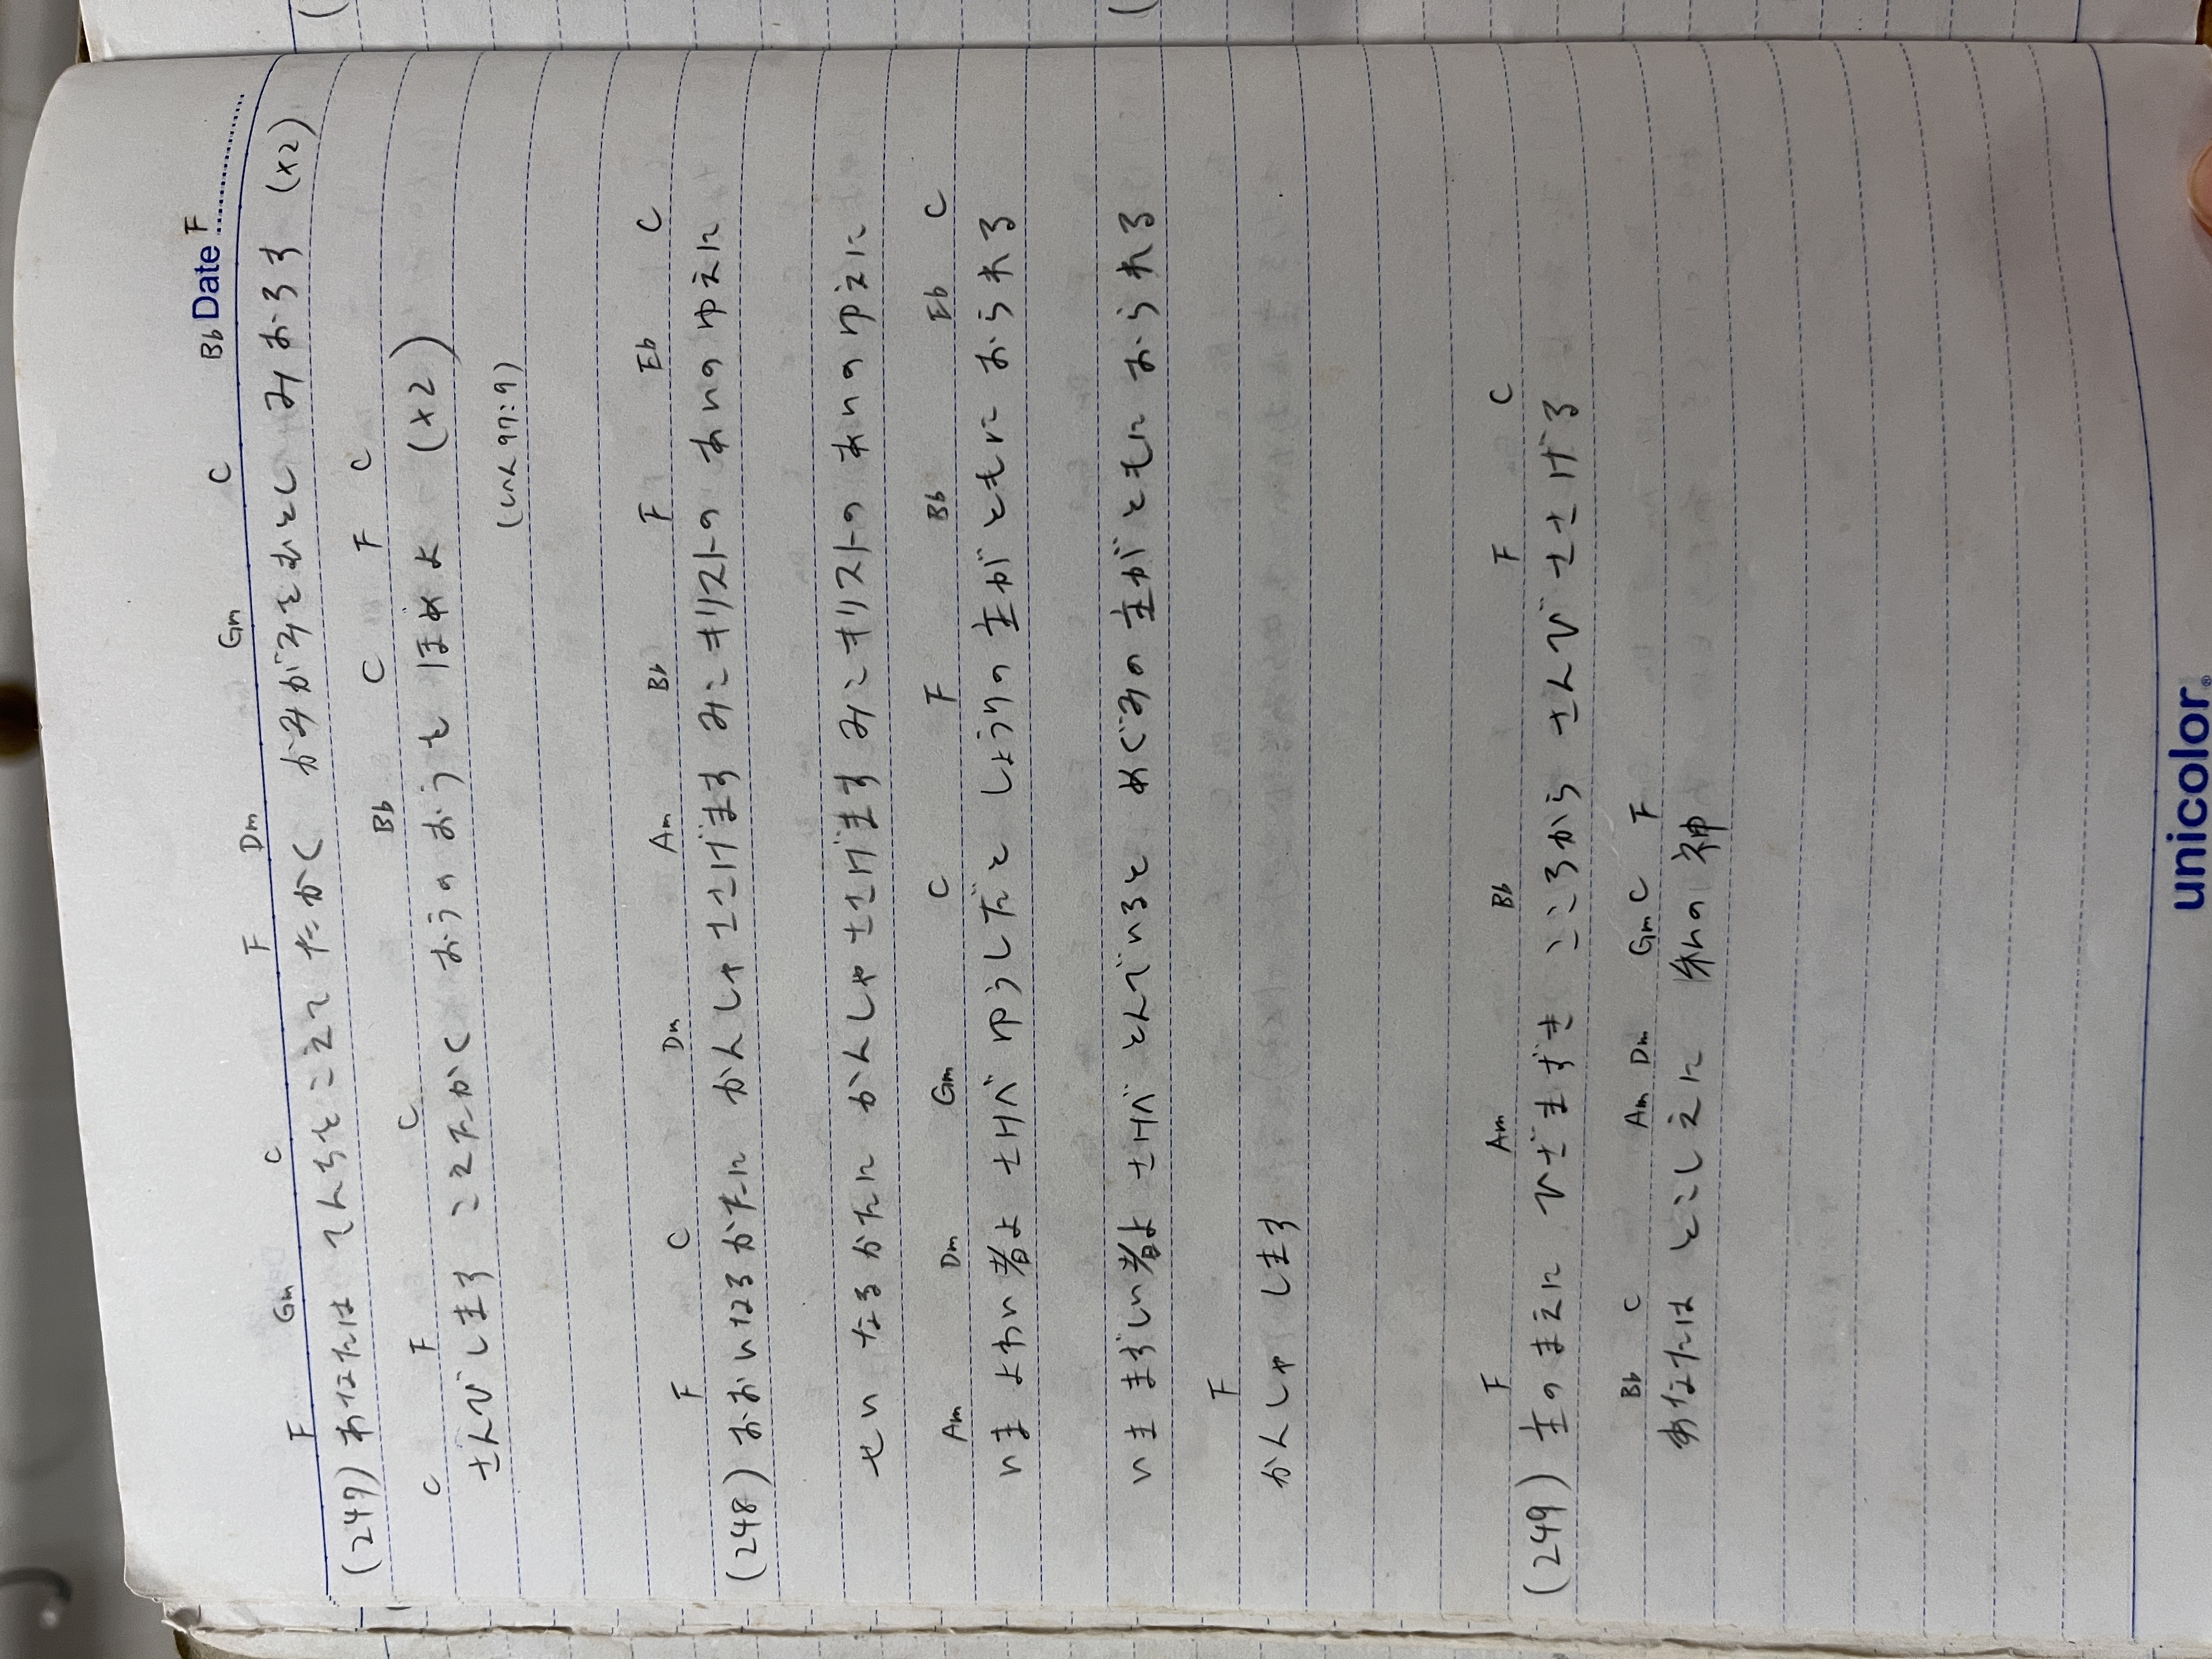 Date
F Gm C F Dm Gm C Bb F
(247) あなたは てんちをこえて たかく かみがみをもとし みおろす (x2)
C F C Bb C F C
さんびします こえたかく おうのおうを ほめよ (x2)
(しへん97:9)
F C Dm Am Bb F Eb C
(248) おおいなるかたに かんしゃささげます みこキリストの あいのゆえに
せいなるかたに かんしゃささげます みこキリストの あいのゆえに
Am Dm Gm C F Bb Eb C
いま よわい者よ さけべ ゆうしだと しょうりの主が ともに おられる
いま まずしい者よ さけべ とんでいると めぐみの主が ともに おられる
F
かんしゃ します
F Am Bb F C
(249) 主のまえに ひざまずき こころから さんび ささげる
Bb C Am Dm Gm C F
あなたは とこしえに 私の神
unicolor®